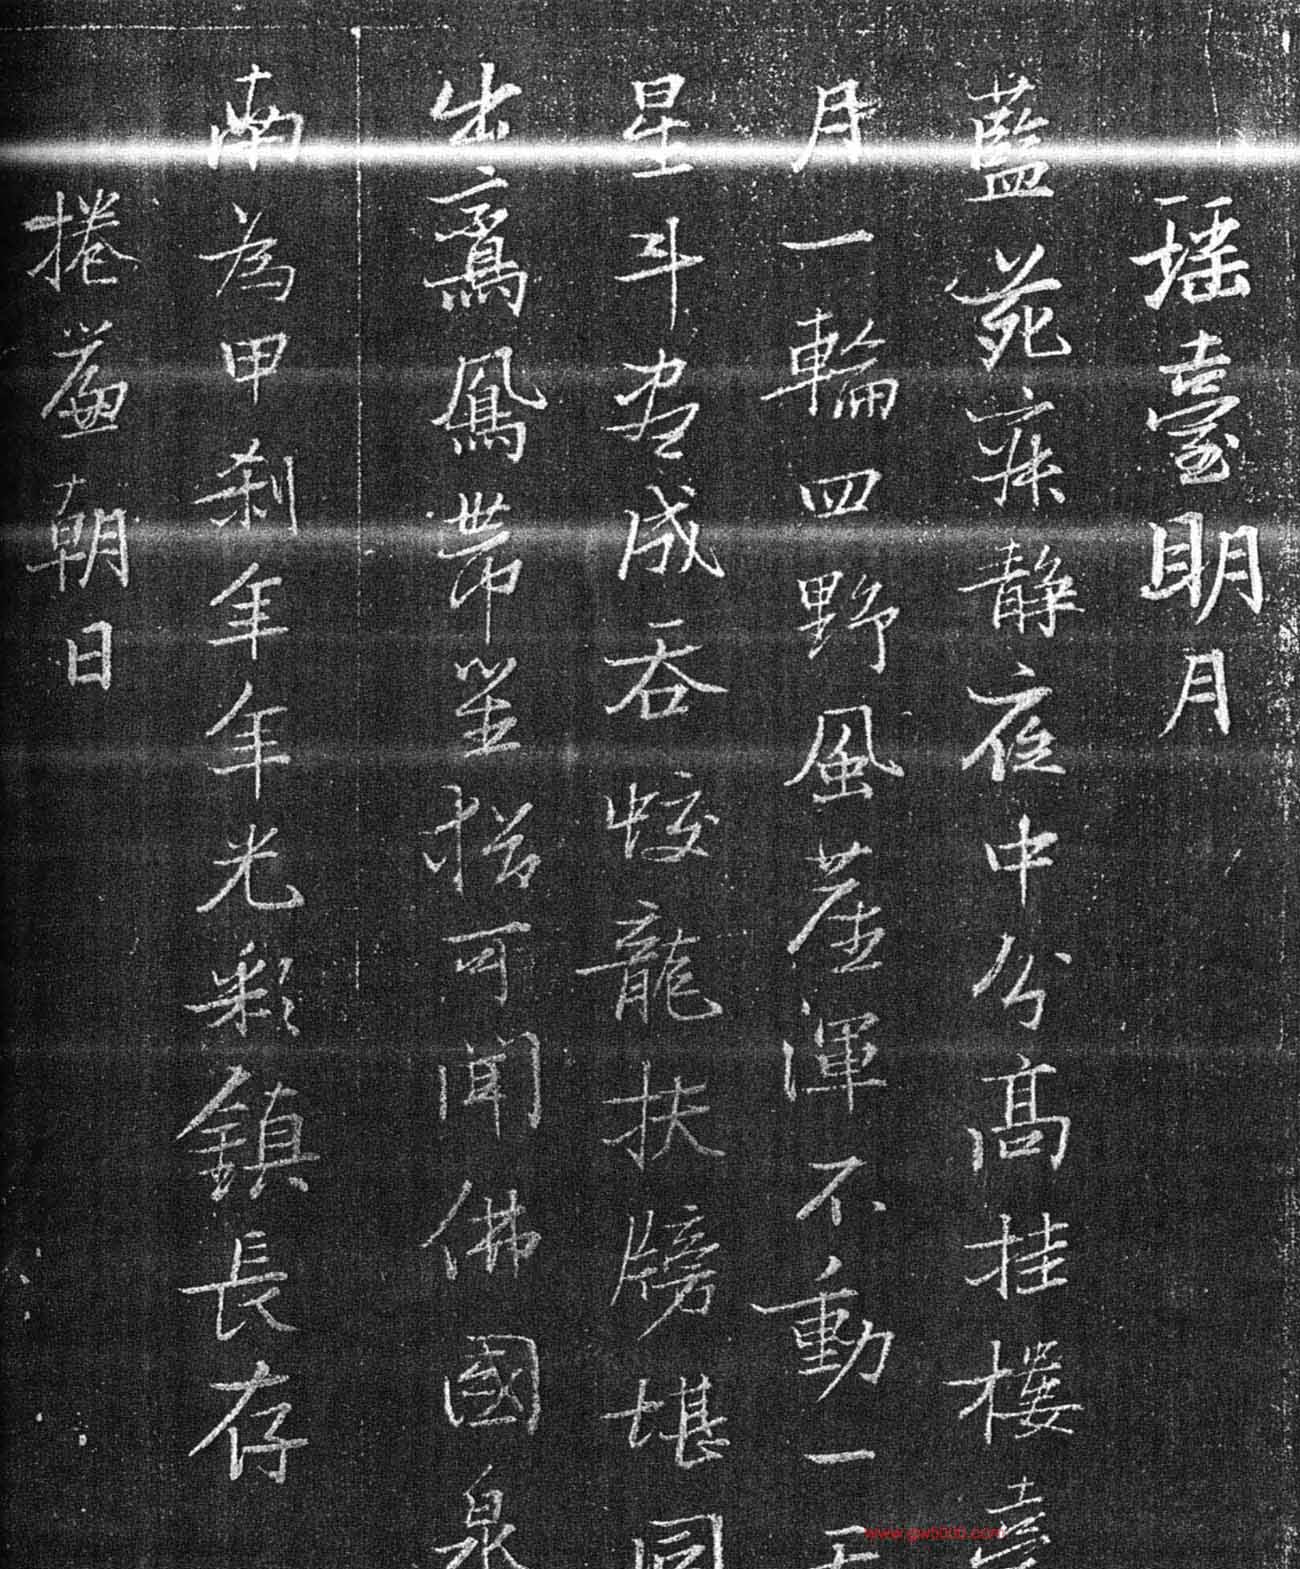 瑤臺明月
藍苑寂靜夜中分高挂樓臺
月一輪四野風塵渾不動一天
星斗盡成吞蛟龍扶牓堪同
出鸞鳳帶㘴招可聞佛國泉
南為甲剎年年光彩鎮長存
捲簾朝日